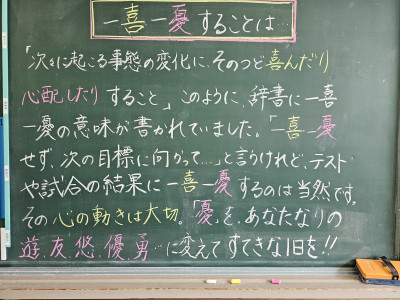 一喜一憂することは…
「次々に起こる事態の変化に、そのつど喜んだり
心配したりすること」このように、辞書に一喜
一憂の意味が書かれていました。「一喜一憂
せず、次の目標に向かって…」と言うけれど、テスト
や試合の結果に一喜一憂するのは当然です。
その心の動きは大切。「憂」を、あなたなりの
遊、友、悠、優、勇…に変えてすてきな1日を!!